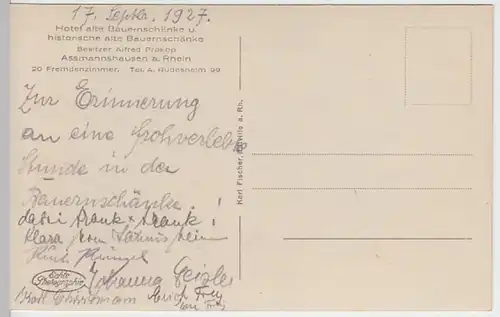 17. Septbr. 1927.
Hotel alte Bauernschänke u.
historische alte Bauernschänke
Besitzer Alfred Prokop
Assmannshausen a. Rhein
20 Fremdenzimmer. Tel. A. Rüdesheim 99
Zur Erinnerung
an eine frohverlebte
Stunde in der
Bauernschänke.
dabei Krank + Krank!
Klara
Johanna Geisler
Echte
Photographie
Karl Christmann Erich Frey
Karl Fischer, a. Rh.